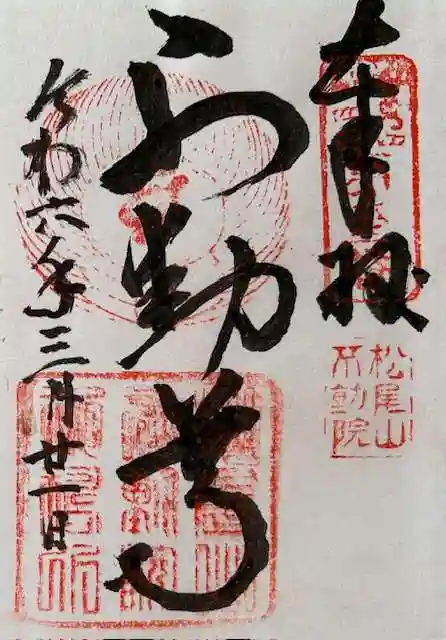 奉拝
松尾山
不動院
不動尊
令和六年三月廿一日